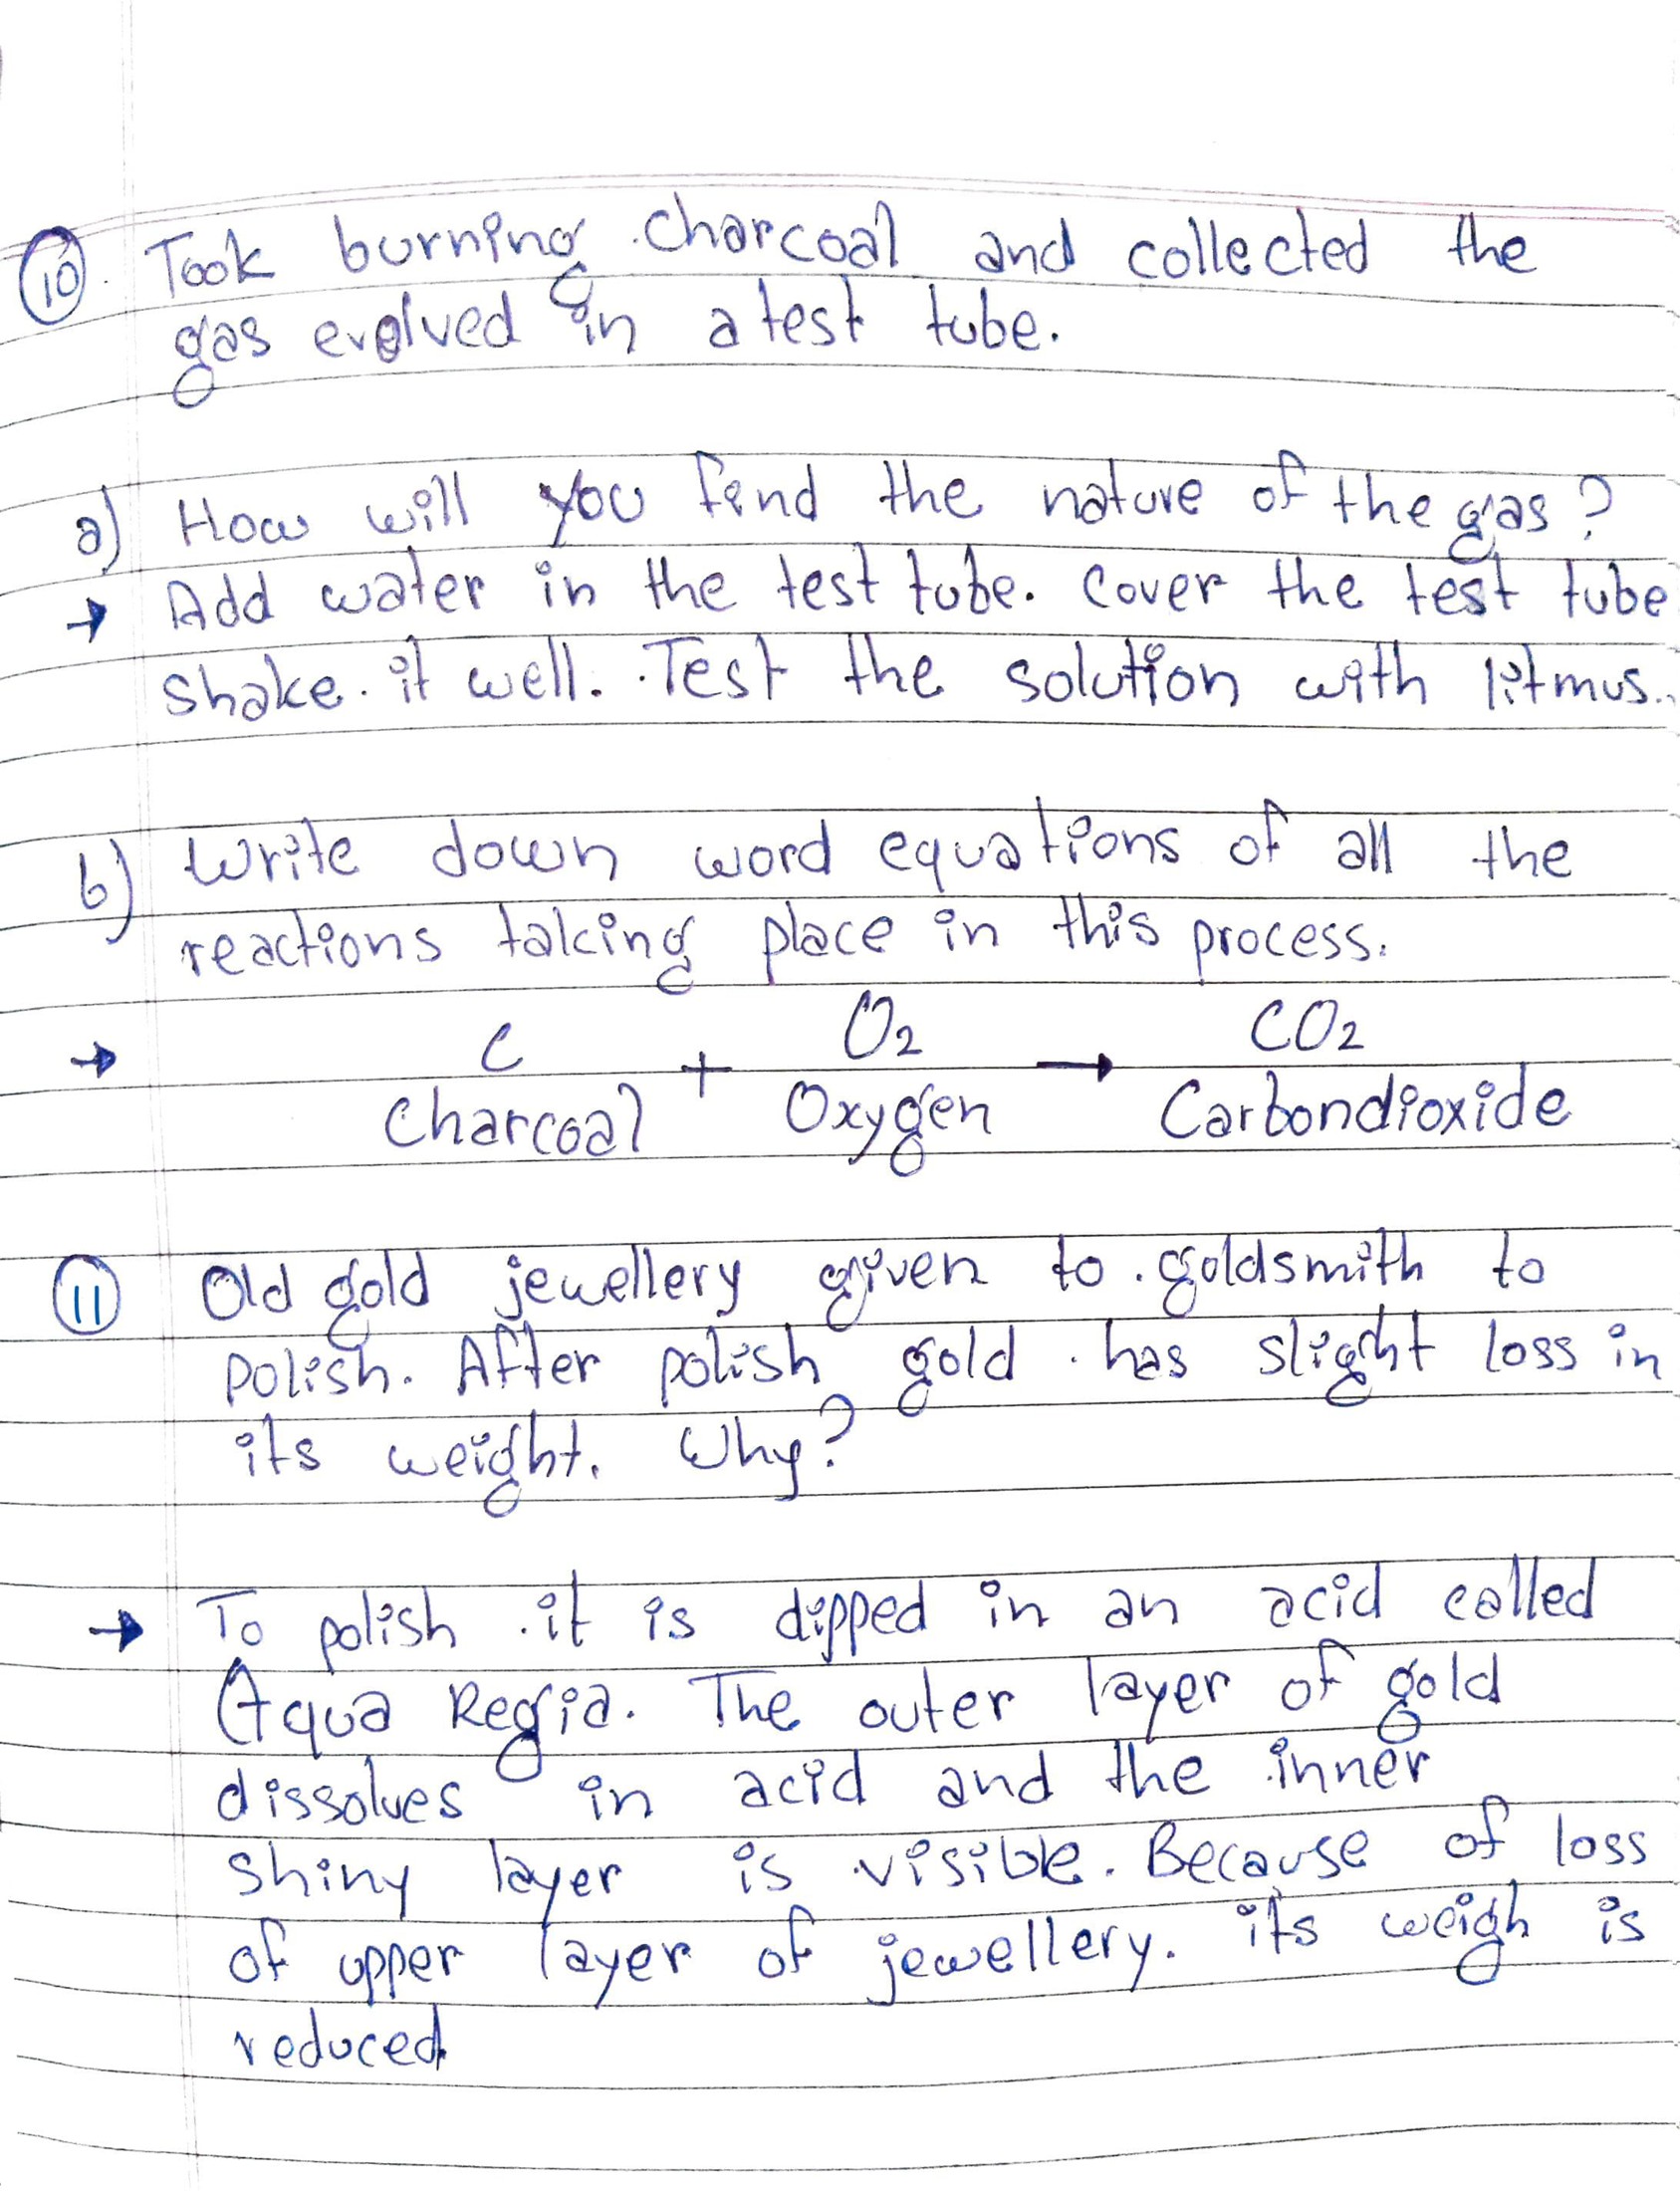 10. Took burning charcoal and collected the
gas evolved in a test tube.
a) How will you find the nature of the gas?
→ Add water in the test tube. Cover the test tube
shake it well. Test the solution with litmus.
b) Write down word equations of all the
reactions taking place in this process.
→ C + O2 → CO2
Charcoal Oxygen Carbondioxide
11 Old gold jewellery given to goldsmith to
polish. After polish gold has slight loss in
its weight. Why?
→ To polish it is dipped in an acid called
Aqua Regia. The outer layer of gold
dissolves in acid and the inner
shiny layer is visible. Because of loss
of upper layer of jewellery. its weigh is
reduced